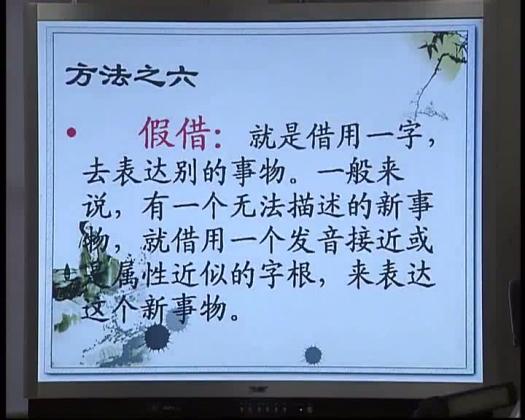 方法之六
假借：就是借用一字，
去表达别的事物。一般来
说，有一个无法描述的新事
物，就借用一个发音接近或
是属性近似的字根，来表达
这个新事物。